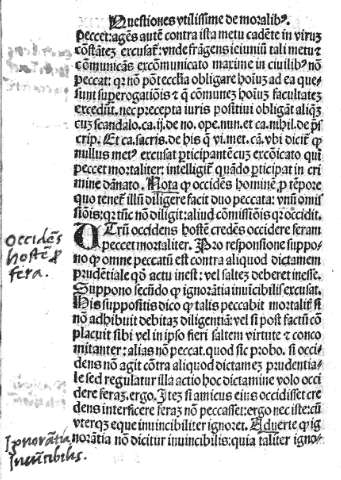 Questiones vtilissime de moralibꝰ.
peccet: agẽs autẽ contra ista metu cadẽte in virũ
cõstãtez excusatꝛ: vnde frãgens ieiuniũ tali metu ⁊
cõmunicãs excõmunicato maxime in ciuilibꝰ nõ
peccat: qꝛ nõ põt ecclĩa obligare hoĩes ad ea que
sunt superogatiõis ⁊ q̃ cõmunez hoĩuz facultatez
excedũt. nec precepta iuris positiui obligãt aliq̃z
cuz scandalo. ca. ij. de no. ope. nun. et ca. nihil. de p̃s
crip. Et ca. sacris. de his q̃ vi. met. cã. vbi dicitꝛ ꝙ
nullus metꝰ excusat ꝑticipantẽ cuz excõicato qui
peccet mortaliter: intelligitꝛ quãdo ꝑticipat in cri
mine dãnato. Nota ꝙ occidẽs hominẽ ꝑ tẽpore
quo tenetꝛ illũ diligere facit duo peccata: vnũ omis
siõis: qꝛ tũc nõ diligit: aliud cõmissiõis qꝛ occidit.
Vtrũ occidens hostẽ credẽs occidere feram
peccet mortaliter. Pro responsione suppo
no ꝙ omne peccatũ est contra aliquod dictamem
prudẽtiale qõ actu inest: vel saltez deberet inesse.
Suppono secũdo ꝙ ignorãtia inuĩcibilis excusat.
His suppositis dico ꝙ talis peccabit mortalitꝛ si
nõ adhibuit debitaz diligentiã: vel si post factũ cõ
placuit sibi vel in ipso fieri saltem virtute ⁊ conco
mitanter: alias nõ peccat. quod sic probo. si occi
dens nõ agit cõtra aliquod dictamez prudentia-
le sed regulatur illa actio hoc dictamine volo occi
dere feraz. ergo. Itez si amicus eius occidisset cre
dens interficere feraz nõ peccasset: ergo nec iste: cũ
vterqz eque inuincibiliter ignoret. Aduerte ꝙ ig
norãtia nõ dicitur inuincibilis: quia taliter igno-
Occidẽs
hostẽ ꝑ
fera.
Ignorãtia
Inuĩcibilis.